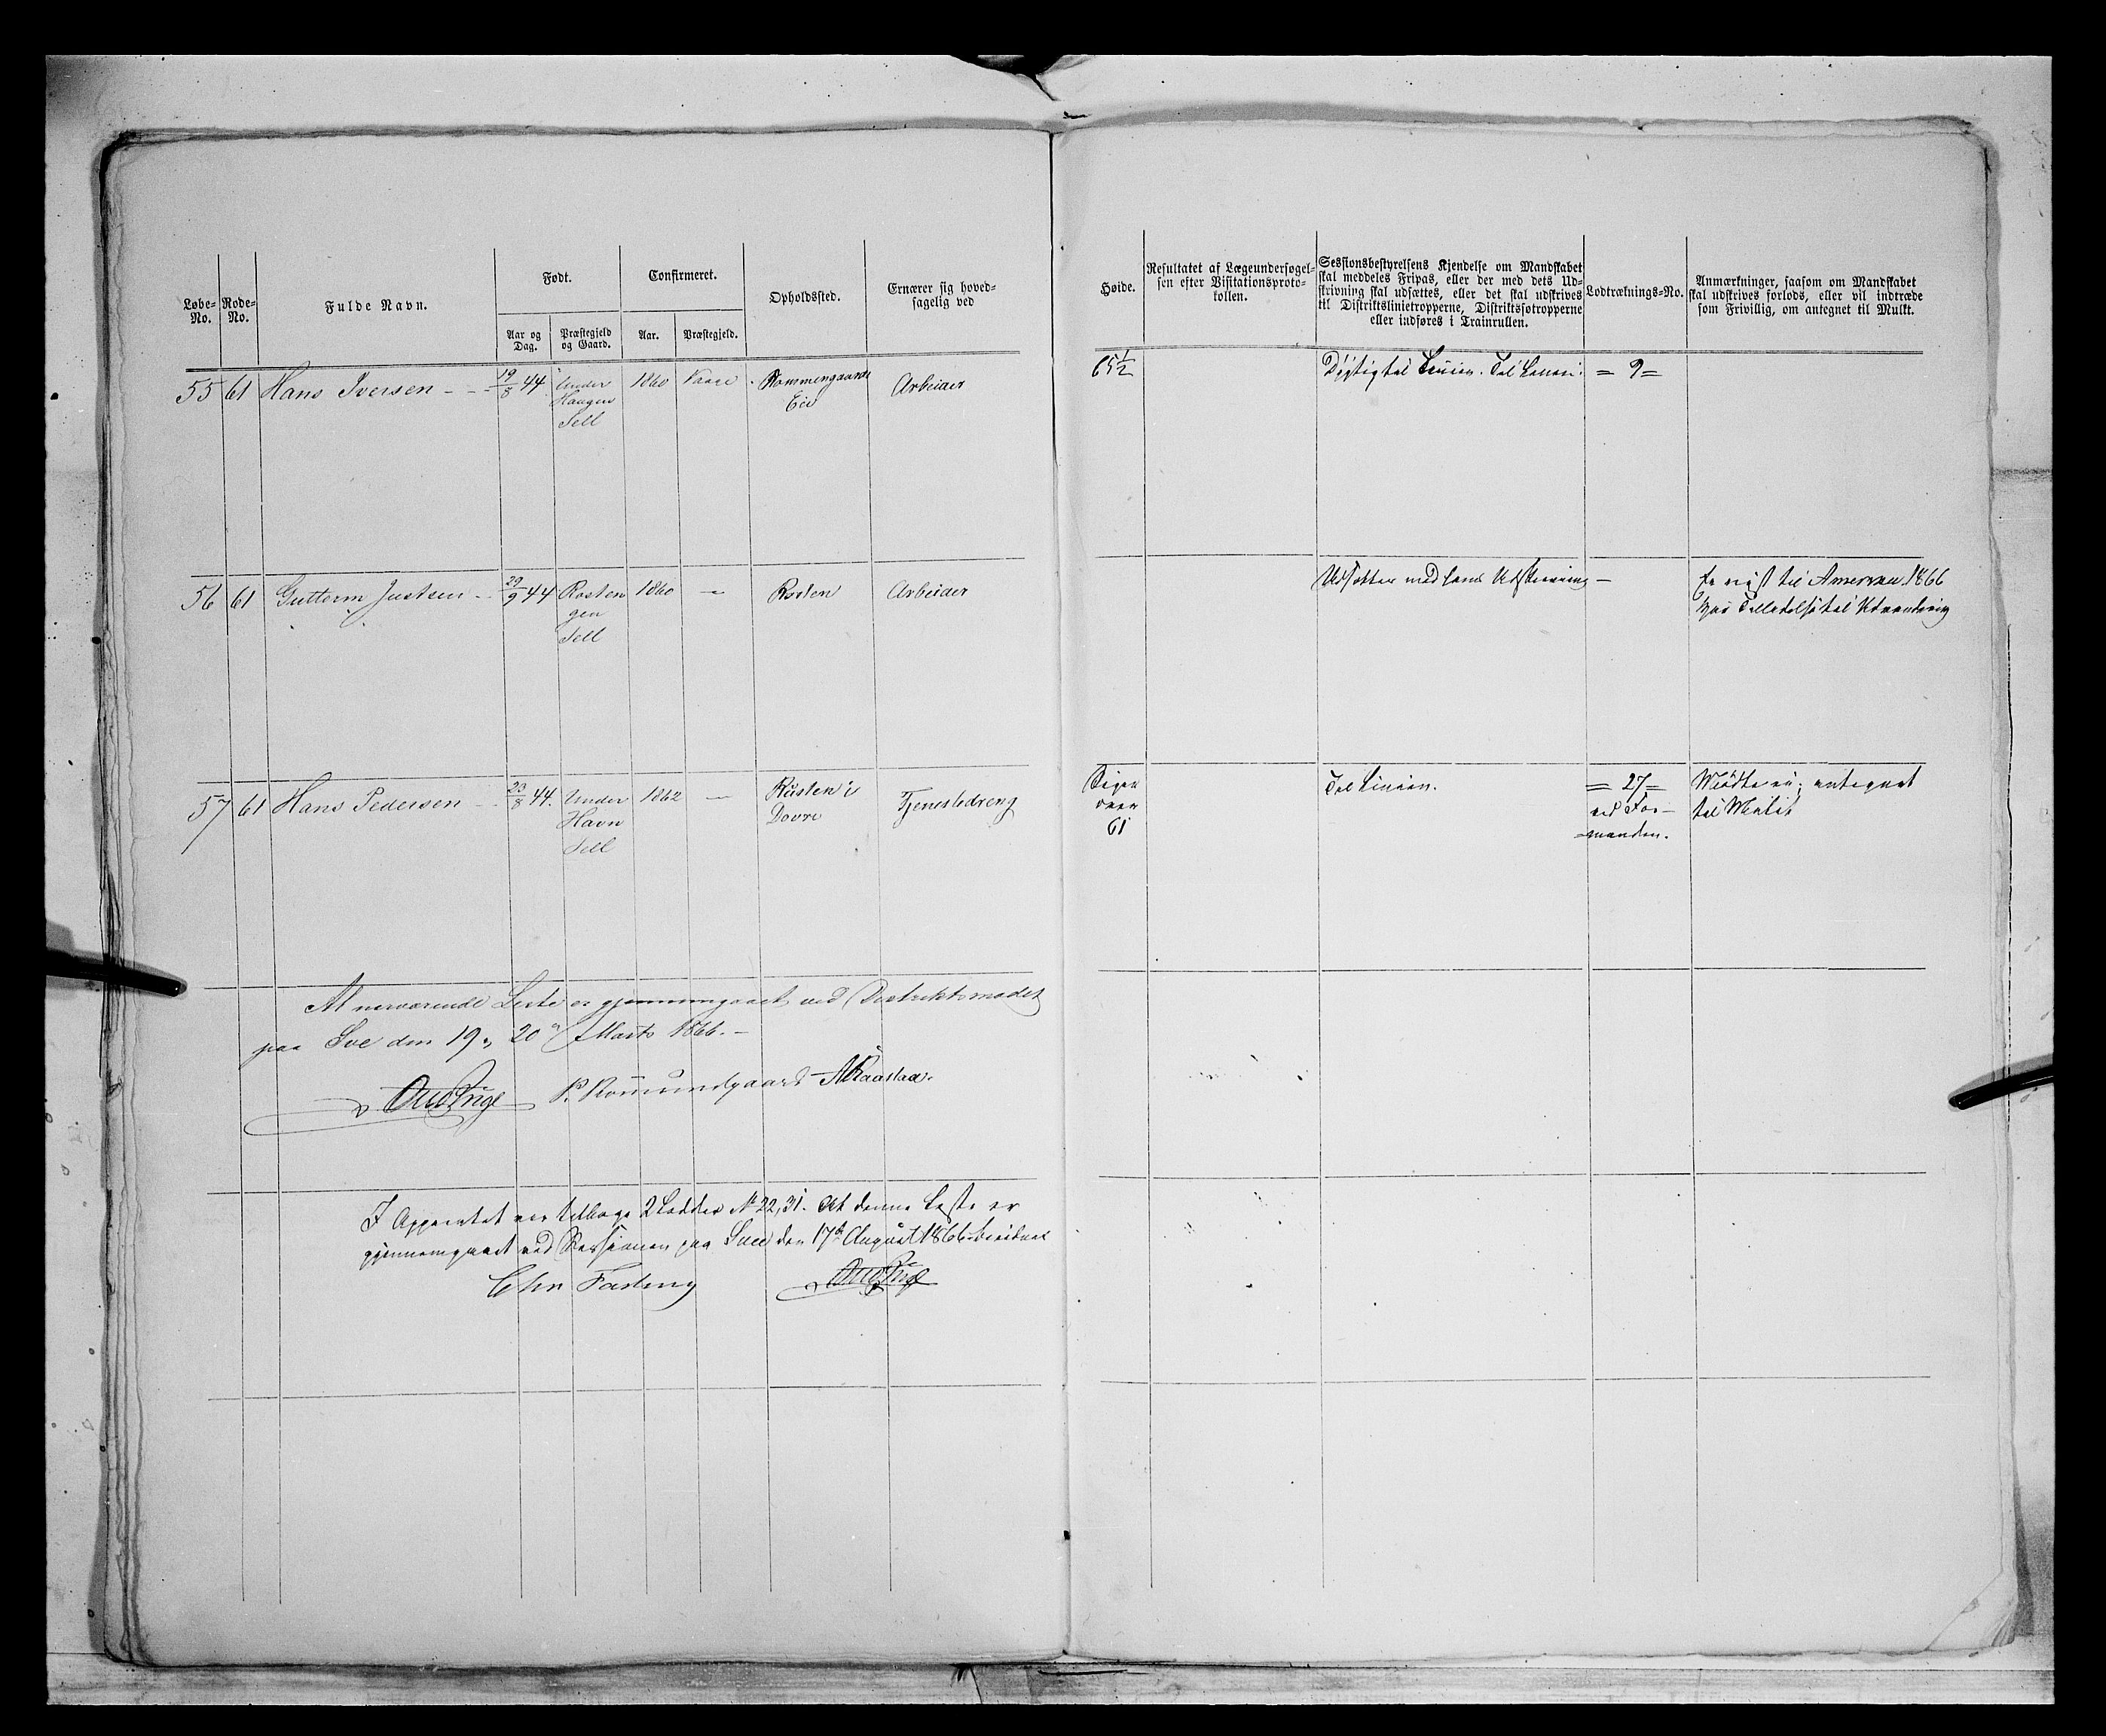 Løbe-No.
Rode-No.
Fulde Navn.
Født.
Aar og Dag.
Præstegjeld og Gaard.
Confirmeret.
Aar.
Præstegjeld.
Opholdssted.
Ernærer sig hoved-
sagelig ved
Høide.
Resultatet af Lægeundersøgel-
sen efter Visitationsproto-
kollen.
Sessionsbestyrelsens Kjendelse om Mandskabet
skal meddeles Fripas, eller der med dets Ud-
skrivning skal udsættes, eller det skal udskrives
til Distriktslinietropperne, Distriktsfotropperne
eller indføres i Trainrullen.
Lodtræknings-No.
Anmærkninger, saasom om Mandskabet
skal udskrives forlods, eller vil indtræde
som Frivillig, om antegnet til Mulkt.
55 61 Hans Iversen - - 19/8 44 Under 1860 Vaage Rommengaards Arbeider
Haugen Eie
Sell
65 1/2 Dygtig til Linien. Til Linien. = 9 =
56 61 Guttorm Justsen - 29/9 44 Rosten 1860 - Rosten Arbeider
gen
Sell
Udsættes med hans Udskrivning - Er reist til Amerika 1866
har Tilladelse til Udvandring
57 61 Hans Pedersen - - 23/8 44. Under 1862 - Rusten i Tjenestedreng
Havn Dovre
Sell
Siges
over
61
Til Linien. = 27 = Mødte ei; antegnet
ved For- til Mulkt
manden.
At nærværende Liste er gjennemgaaet ved Distriktsmødet
paa Sve den 19 og 20 Marts 1866. -
P. Romundgaard
I Apparatet var tilbage 2 Lodder No 22, 31. At denne Liste er
gjennemgaaet ved Sessionen paa Sve den 17de August 1866 bevidnes
Chr